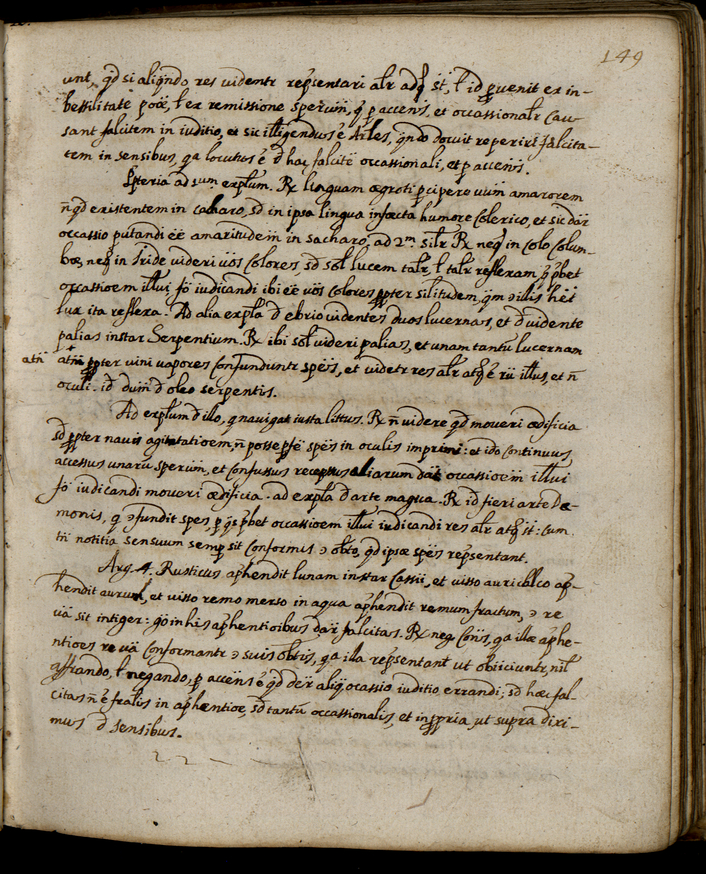 149
unt, qd si aliqndo res videntr repsentari alr adq st, l id pvenit ex in-
becilitate poæ, l ex remissione sperum, q p accens, et occassionalr cau-
sant falcitem in iuditio, et sic illigendus e Arles, qndo docuit reperiri falcita-
tem in sensibus, qa locutus e d hac falcite occassionali, et p accens.
Ppteria ad sum explum. Rx linguam ægroti pcipere vum amarorem
n qd existentem in cacharo, sd in ipsa lingua infecta humore Colerico, et sic dar
occassio putandi ee amaritudem in sacharo, ad 2m silr Rx neq in Colo Colum-
bæ, neq in Iride videri vos Colores, sd sol lucem talr, l talr reflexam, q pbet
occassioem illui fo iudicandi ibi ee vos colores ppter silitudem, qm cillis het
lux ita reflexa. Ad alia expla d ebrio videntes duos lucernas, et d vidente
palias instar Serpentium. Rx ibi sol videri palias, et unam tantu lucernam
atn atn ppter vini vapores Confunduntr speis, et videtr res alr atq e rii illus, et n
oculi. id dum d oleo serpentis.
Ad explum d illo, q navigat iusta littus. Rx n videre qd moveri ædificia
sd ppter navis agitatioem, n posse pse speis in oculis imprimi: et ido Continuus,
accessus unaru sperum, et Confussus receptus aliarum dat occassioem illui
fo iudicandi moveri ædificia. ad expla d arte magua. Rx id fieri arte Dæ-
monis, q cfundit spes, p qs pbet occassioem illui iudicandi res alr atq st: Cum
tn notitia sensuum semp sit Conformis c obto, qd ipsæ speis repsentant.
Arg. 4. Rusticus aphendit lunam instar Cassii, et visso auricalco ap-
hendit aurum, et visso remo merso in aqua aphendit remum fractum, c re
va sit intiger: go in his aphentioibus dar falcitas. Rx neg Cons, qa illæ aphe-
ntioes re va Conformantr c suis obtis, qa illa repsentant ut obiiciuntr, nil
affirando, l negando, p accens e qd der aliq ocassio iuditio errandi; sd hæc fal-
citas n e fralis in aphentioe, sd tantu occassionalis, et impropria, ut supra dixi-
mus d sensibus.